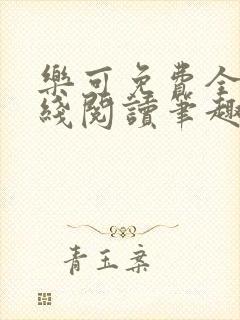 樂可免費全
綫閱讀筆趣
青玉案